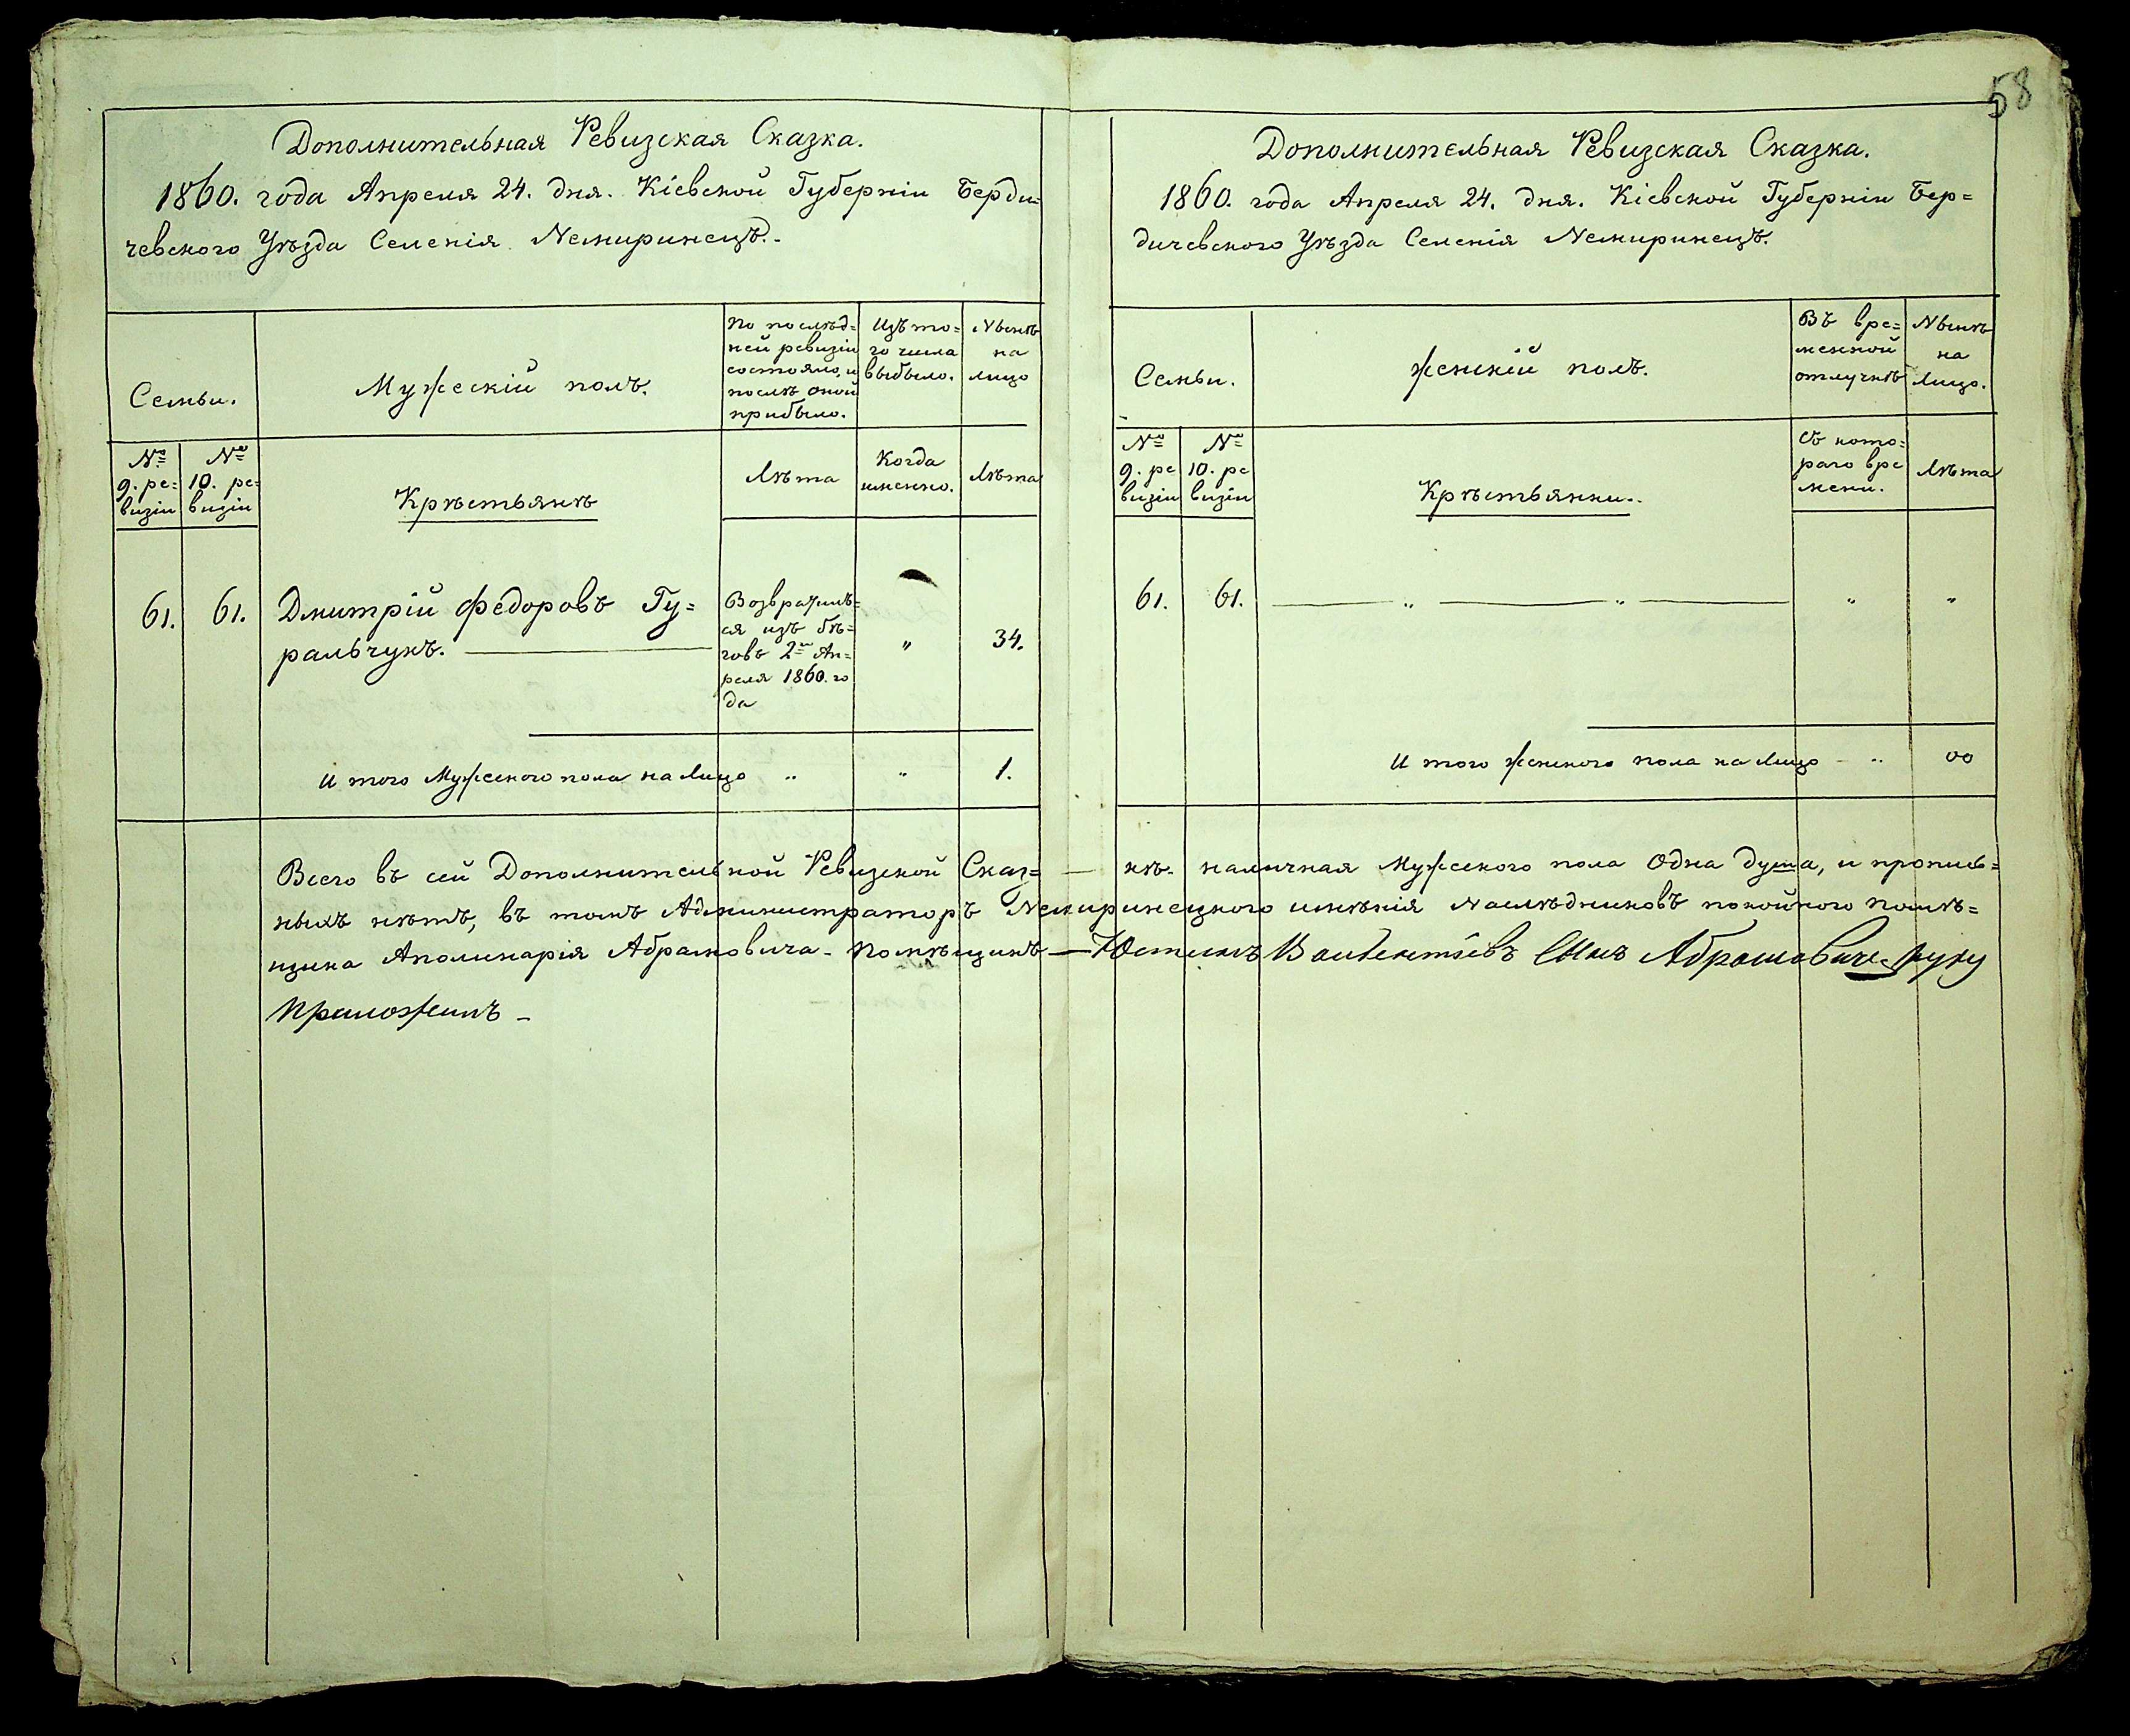 58
Дополнительная Ревизская Сказка.
1860. года Апреля 24. дня. Кіевской Губерніи Берди=
чевского Уѣзда Селенія Немиринецъ.
Семьи.
Мужескій полъ.
По послѣд=
ней ревизіи
состояло, и
послѣ оной
прибыло.
Изъ то=
го числа
выбыло.
Нынѣ
на
лицо
№
9. ре=
визіи
№
10. ре=
визіи
Крѣстьянѣ
Лѣта
Когда
именно.
Лѣта
61. 61. Дмитрій Федоровъ Гу=
ральчукъ.
Возвратилъ=
ся изъ бѣ=
говъ 2го Ап=
реля 1860. го
да
" 34.
И того Мужеского пола на Лицо " " 1.
Дополнительная Ревизская Сказка.
1860. года Апреля 24. дня. Кіевской Губерніи Бер=
дичевского Уѣзда Селенія Немиринецъ.
Семьи.
Женскій полъ.
Въ вре=
менной
отлучкѣ
Нынѣ
на
Лицо.
№
9. ре
визіи
№
10. ре
визіи
Крѣстьянки.
Съ кото=
раго вре
мени.
Лѣта
61. 61. " " " "
И того Женского пола на Лицо - " 00
Всего въ сей Дополнительной Ревизской Сказ= — кѣ. наличная Мужеского пола Одна душа, и пропис=
ныхъ нѣтъ, въ томъ Администраторъ Немиринецкого имѣнія Наслѣдниковъ покойного Помѣ=
щика Аполинарія Абрамовича - Помѣщикъ — Юстинъ Сынъ Абрамовичь руку
приложилъ -